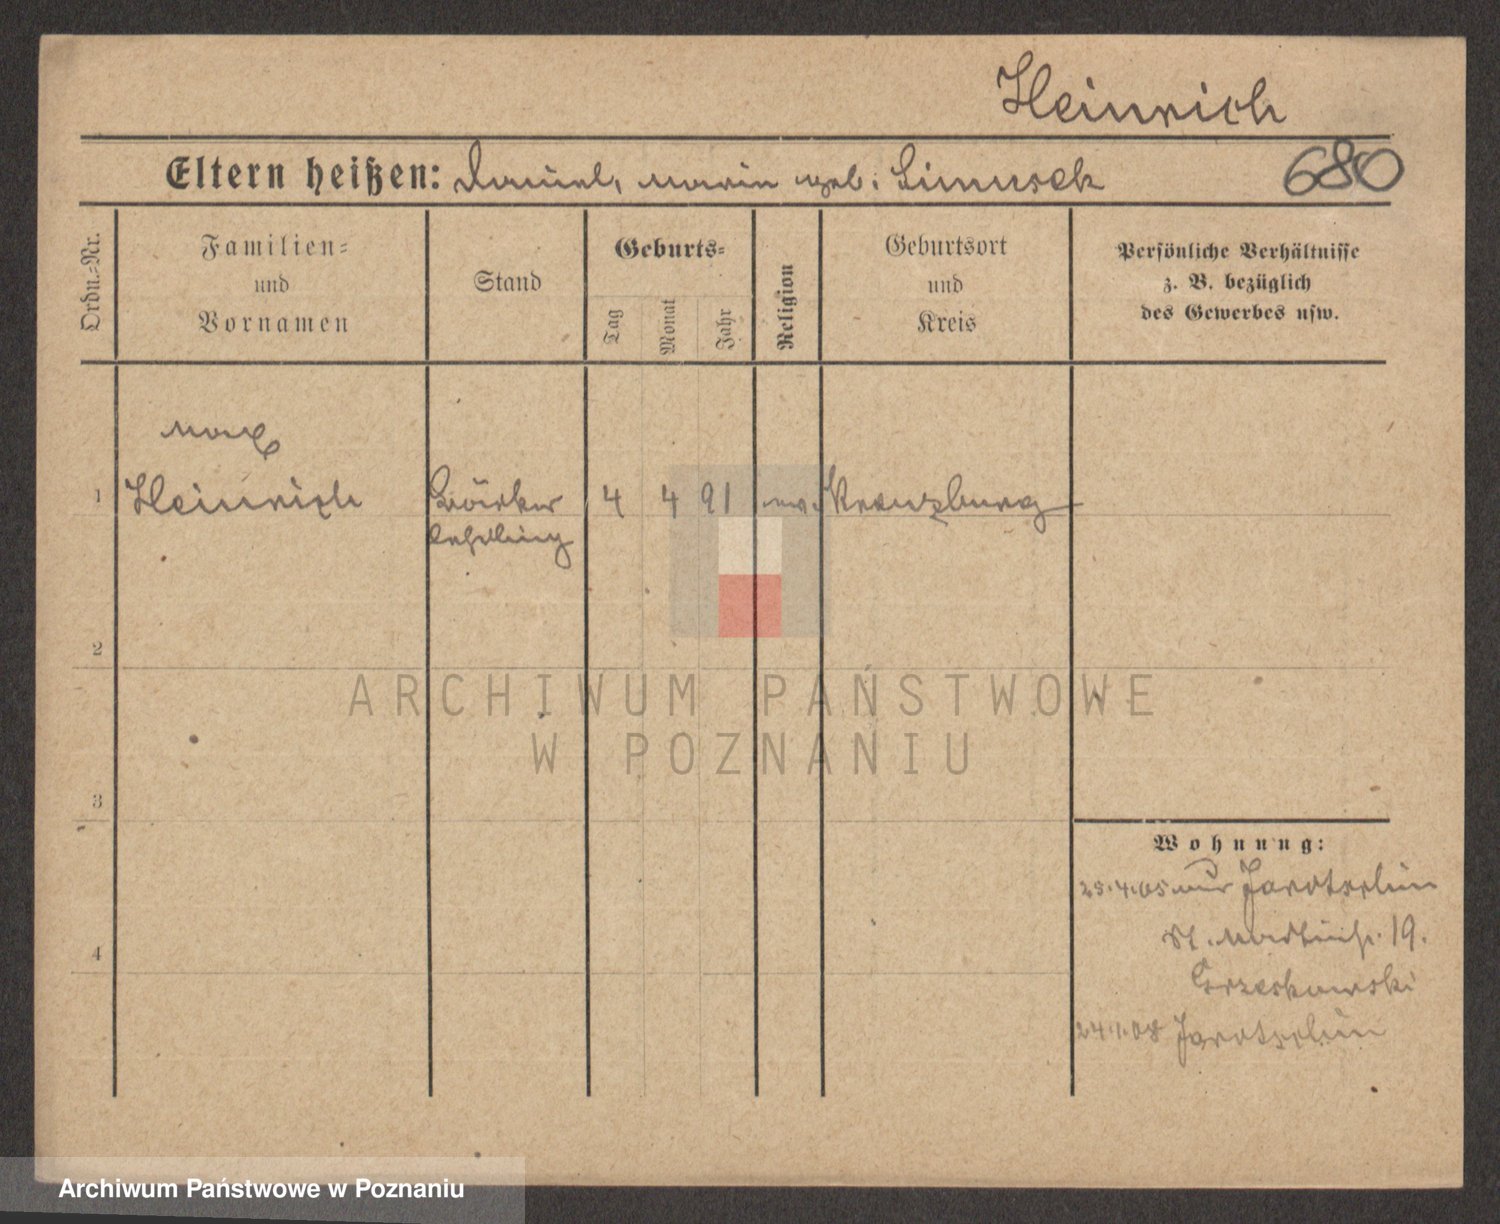 Heinrich
Eltern heißen: Daniel, Maria geb. Simusek
680
Ordn.-Nr.
Familien-
und
Vornamen
Stand
Geburts-
Tag
Monat
Jahr
Religion
Geburtsort
und
Kreis
Persönliche Verhältnisse
z. B. bezüglich
des Gewerbes usw.
Max
1 Heinrich Bäcker 4 4 91 ev. Kreuzburg
lehrling
2
3
4
Wohnung:
25.4.05 aus Jarotschin
St. Martinstr. 19.
Grzeskowski
24.1.08 Jarotschin
ARCHIWUM PAŃSTWOWE
W POZNANIU
Archiwum Państwowe w Poznaniu